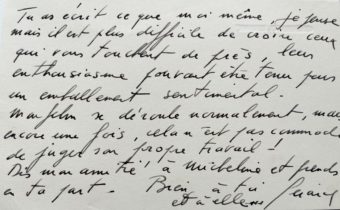 Tu as écrit ce que moi même, je pense
mais il est plus difficile de croire ceux
qui vous touchent de près, leur
enthousiasme pouvant être tenu pour
un emballement sentimental.
Mon film se déroule normalement, mais
encore une fois, cela n'est pas commode
de juger son propre travail!
Dis mon amitié à Micheline et prends
en ta part. Bien à toi
et à elle